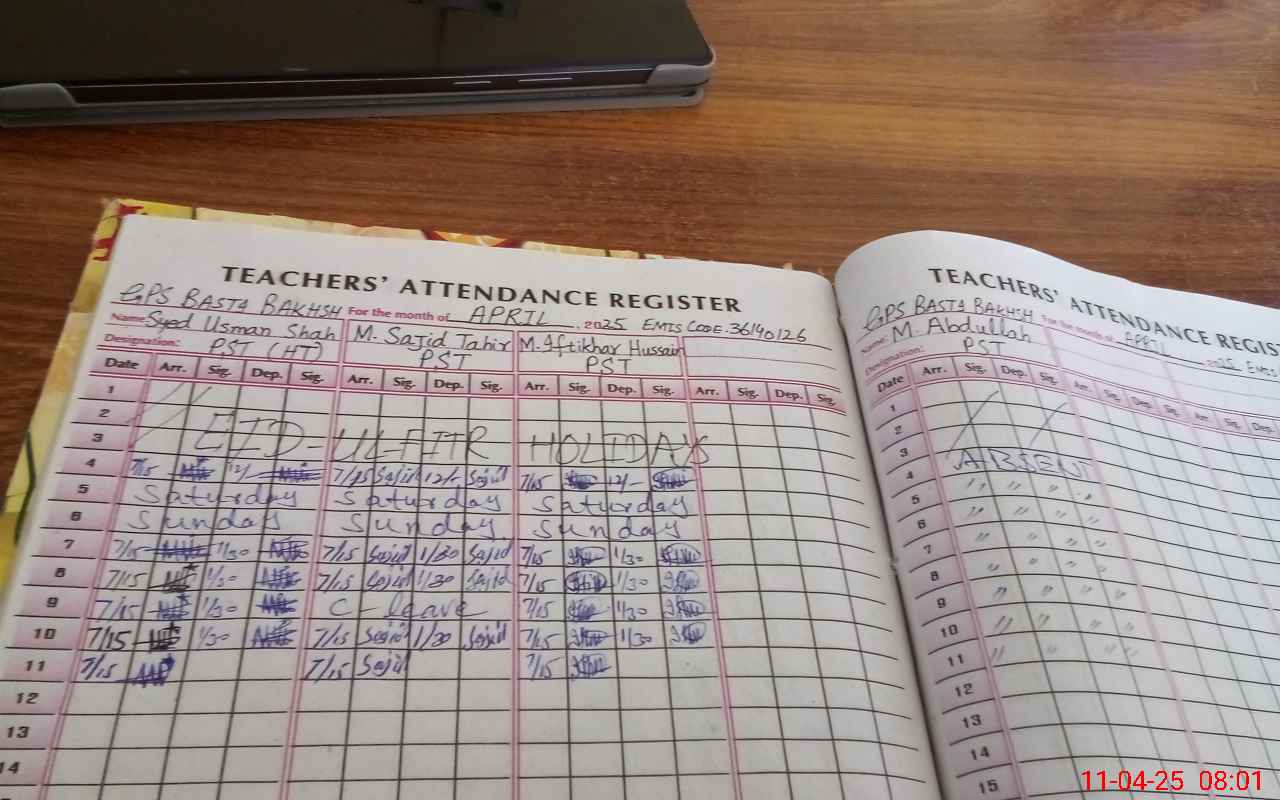 TEACHERS' ATTENDANCE REGISTER
GPS BASTA BAKHSH For the month of APRIL 2025 EMIS CODE. 36190126
Name: Syed Usman Shah M. Sajid Tahir M. Iftikhar Hussain
Designation: PST (HT) PST PST
Date Arr. Sig. Dep. Sig. Arr. Sig. Dep. Sig. Arr. Sig. Dep. Sig. Arr. Sig. Dep. Sig.
1
2
3 EID-ULFITR HOLIDAYS
4 7/15 12/- 7/15 Sajid 12/- Sajid 7/15 12/-
5 Saturday Saturday Saturday
6 Sunday Sunday Sunday
7 7/15 1/30 7/15 Sajid 1/30 Sajid 7/15 1/30
8 7/15 1/30 7/15 Sajid 1/30 Sajid 7/15 1/30
9 7/15 1/30 C-leave 7/15 1/30
10 7/15 1/30 7/15 Sajid 1/30 Sajid 7/15 1/30
11 7/15 7/15 Sajid 7/15
12
13
14
TEACHERS' ATTENDANCE REGIS
GPS BASTA BAKHSH For the month of APRIL 2025 EMIS
Name: M. Abdullah
Designation: PST
Date Arr. Sig. Dep. Sig. Arr. Sig. Dep. Sig. Arr. Sig. Dep.
1
2
3 ABSENT
4 " " " "
5 " " " "
6 " " " "
7 " " " "
8 " " " "
9 " " " "
10 " " " "
11
12
13
14
15
11-04-25 08:01